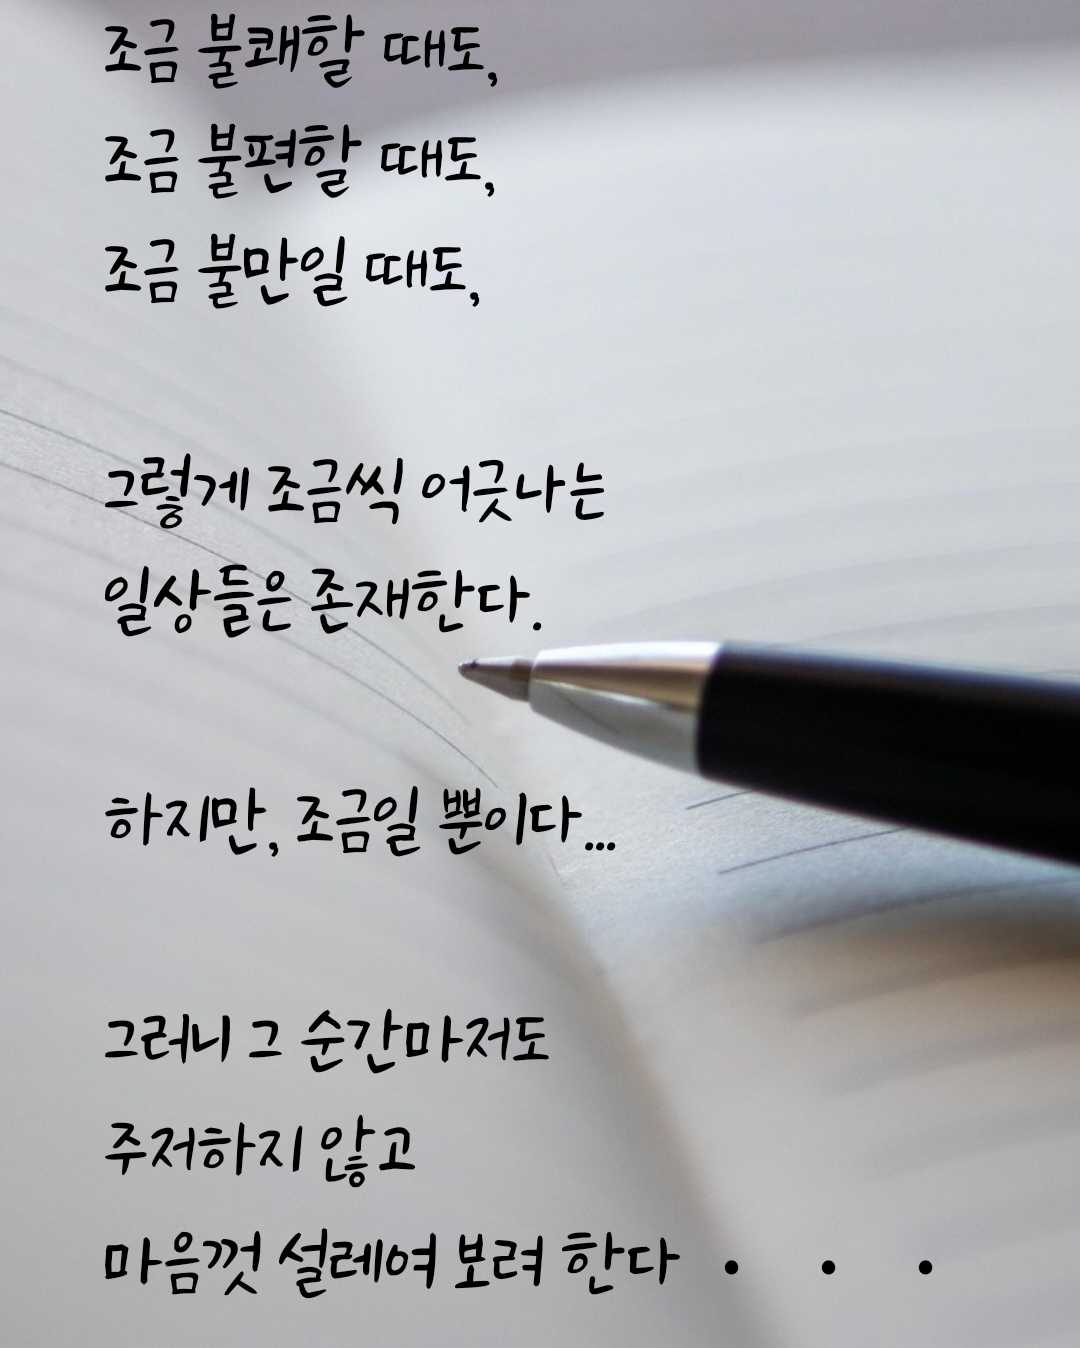 조금 불쾌할 때도,
조금 불편할 때도,
조금 불만일 때도,
그렇게 조금씩 어긋나는
일상들은 존재한다.
하지만, 조금일 뿐이다...
그러니 그 순간마저도
주저하지 않고
마음껏 설레여 보려 한다 . . .